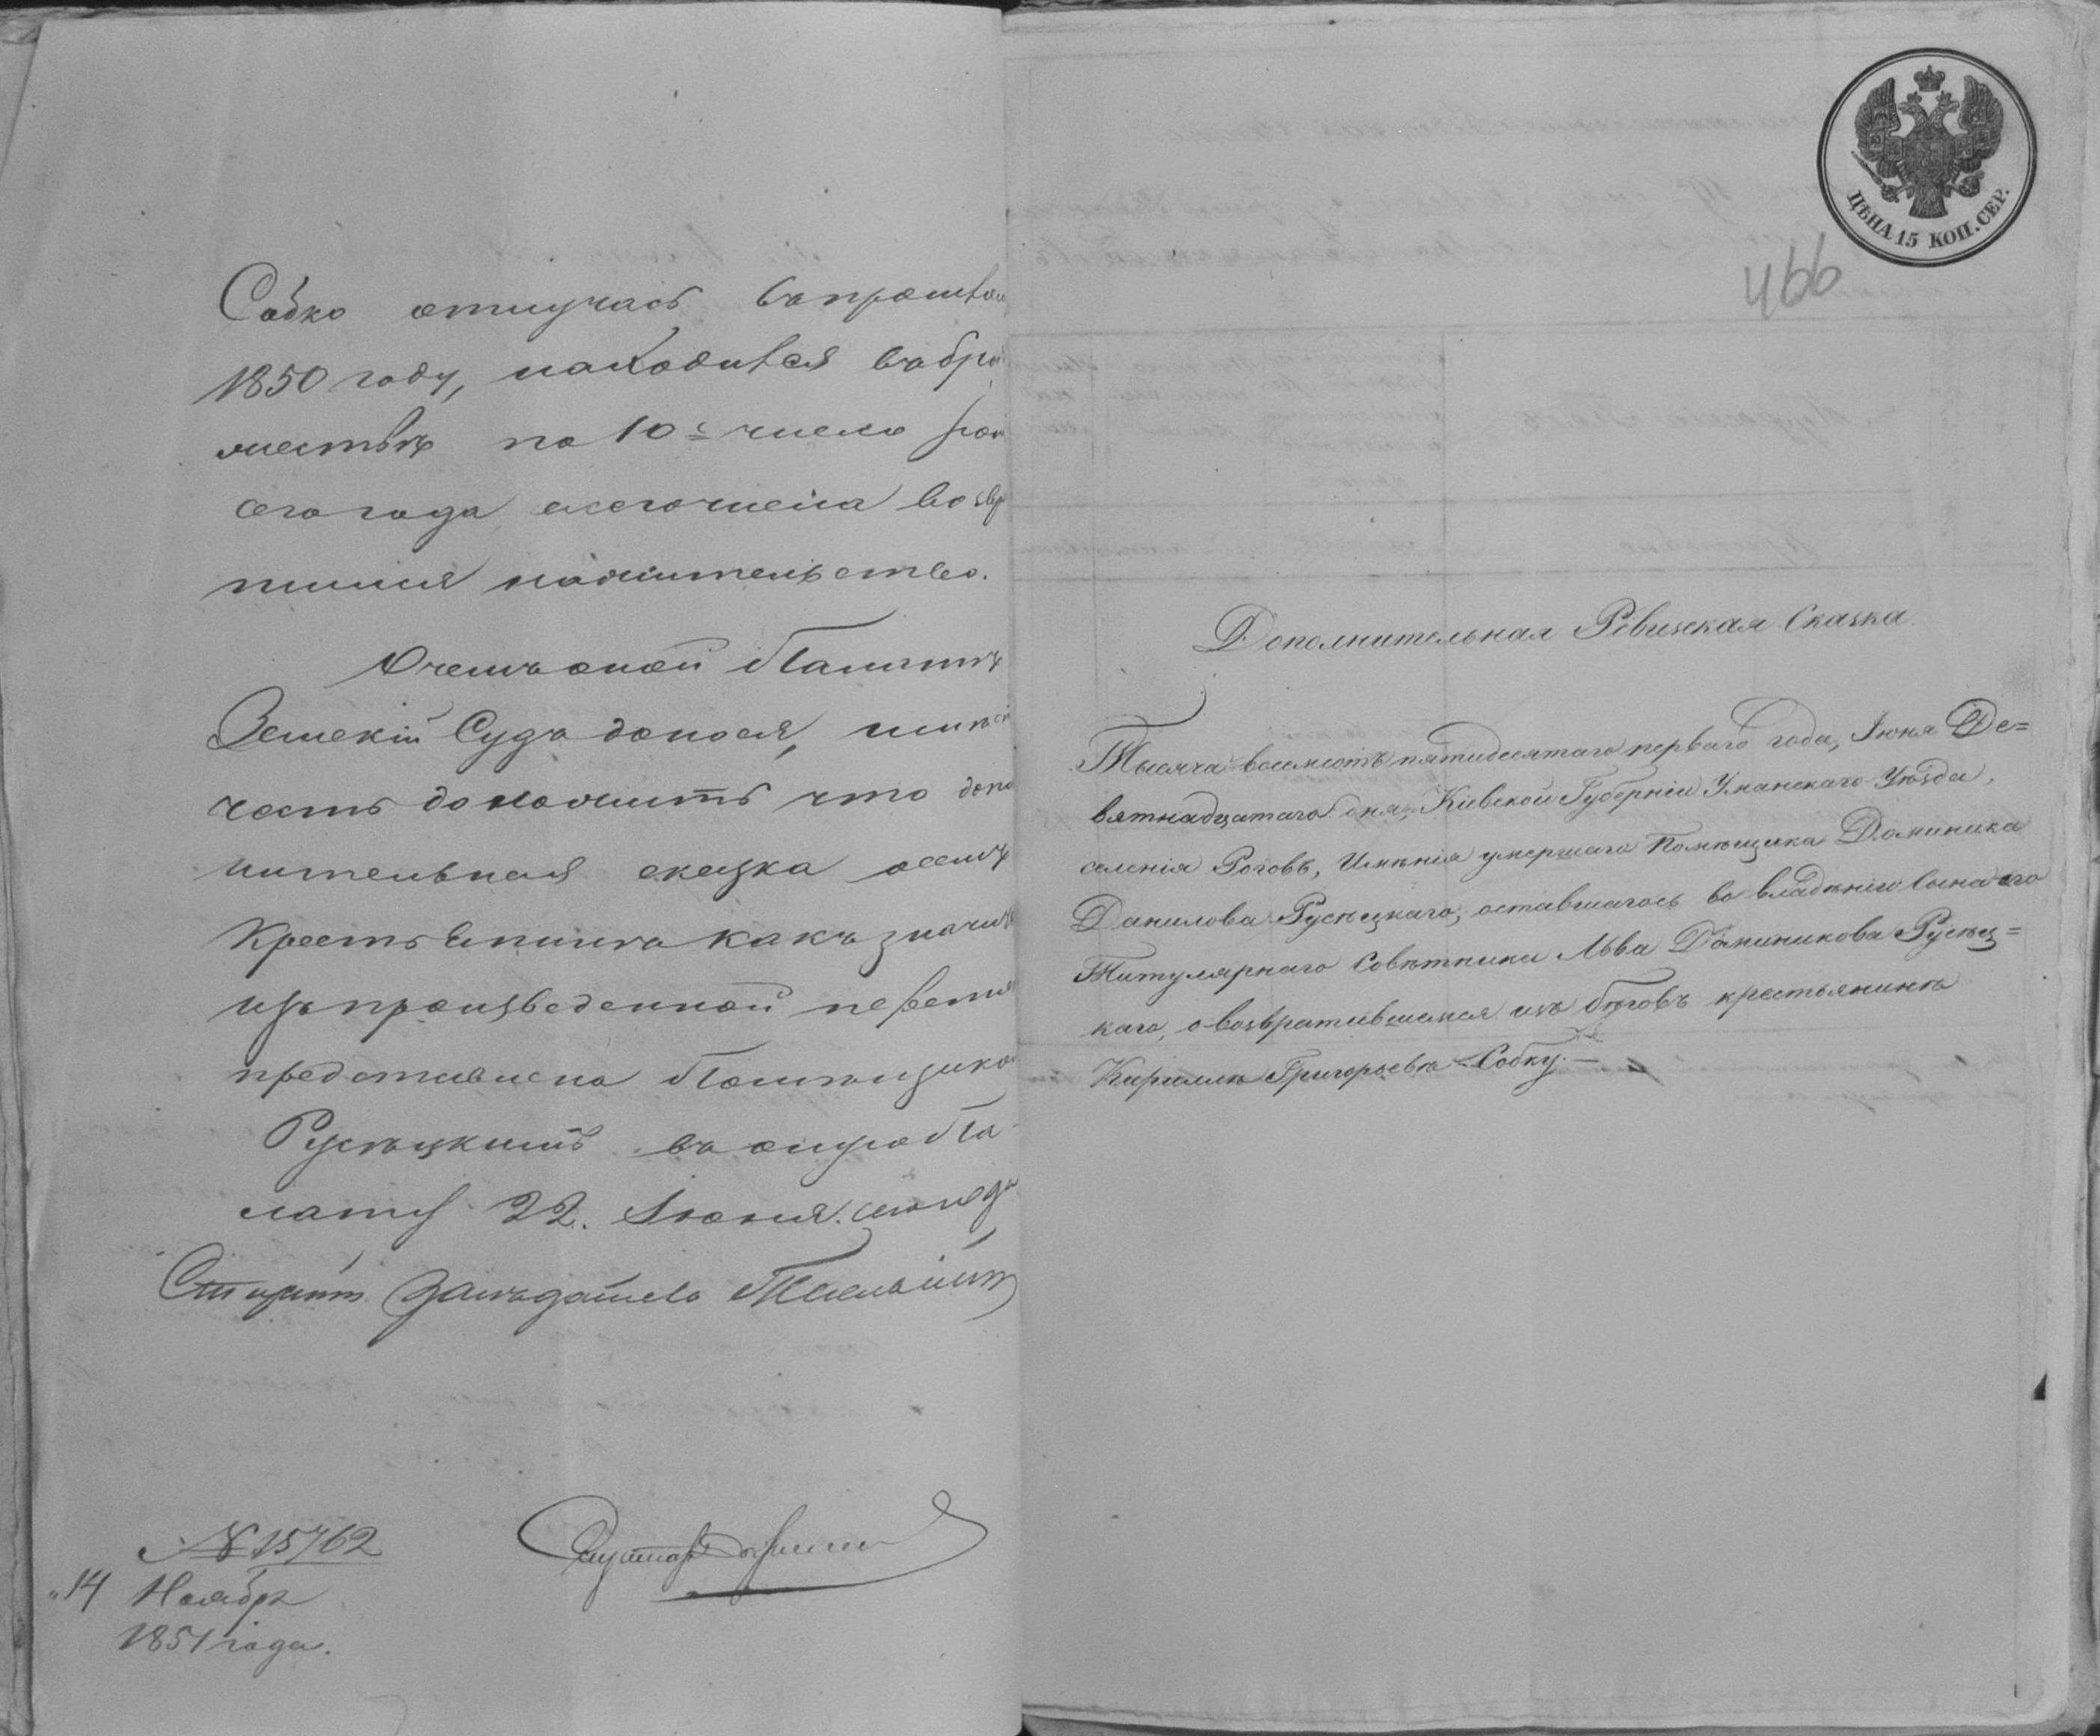 Собко отлучась въ прошло
1850 году, находился въ бро
яжествѣ по 10е число
сего года а сего числа возвр
на жительство.
О чемъ оной Палатѣ
Земскій Судъ донося, имѣе
честь доложить что допо
нительная сказка о семъ
крестьянинѣ какъ значит
изъ произведенной
представлена Помѣщико
Русѣцкимъ въ оную Па-
лату 22. Іюня. сего года
Старш. Засѣдатель
№ 15762
"14 Ноября
1851 года.
ЦѢНА 15 КОП. СЕР.
466
Дополнительная Ревизская Сказка
Тысяча восемсотъ пятидесятаго перваго года, Іюня Де=
вятнадцатаго дня, Кіевской Губерніи Уманскаго Уѣзда,
селенія Роговъ, Имѣнія умершаго Помѣщика Доминика
Данилова Русѣцкаго, оставшагось во владѣніи Сына его
Титулярнаго Совѣтника Льва Доминикова Русѣц=
каго, о возвратившемся изъ бѣговъ крестьянинѣ
Кириллѣ Григорьевѣ Собку. —